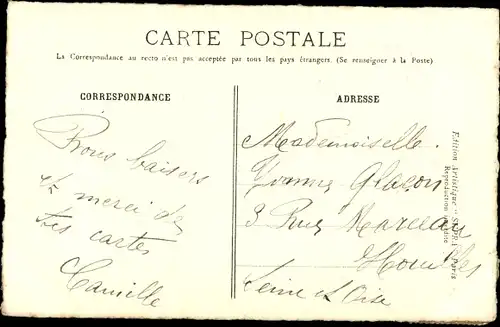 CARTE POSTALE
La Correspondance au recto n'est pas acceptée par tous les pays étrangers. (Se renseigner à la Poste)
CORRESPONDANCE
baisers
et merci de
tes cartes
Camille
ADRESSE
Mademoiselle.
Yvonne Glaçon
3 Rue Marceau
Houilles
Seine et Oise
Edition Artistique "SUPRA" Paris
Reproduction interdite